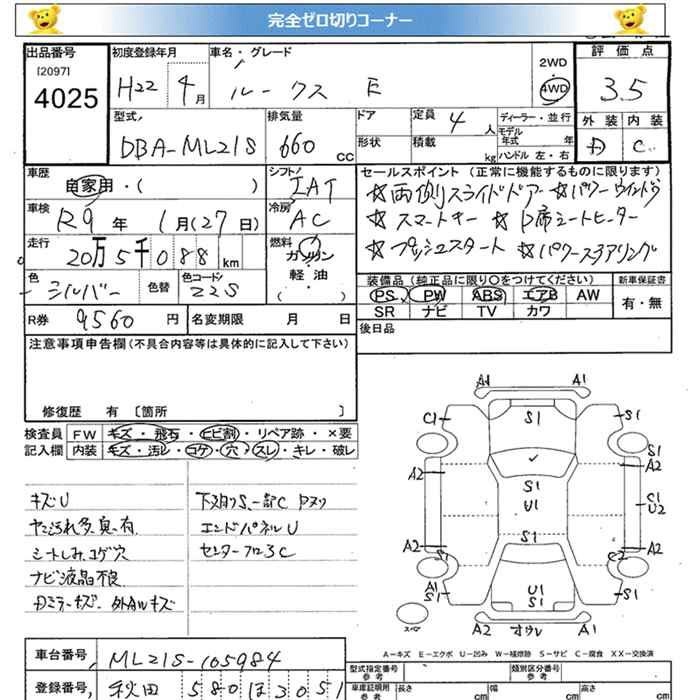 完全ゼロ切りコーナー
出品番号 初度登録年月 車名・グレード 2WD 評価点
[2097] 4025 H22 4月 ルークス E 4WD 3.5
型式 排気量 ドア 定員 4人 ディーラー・並行 外装 内装
DBA-ML21S 660cc 形状 積載 kg モデル年式 年 ハンドル 左・右 D C
車歴 自家用・( ) シフト IAT セールスポイント (正常に機能するものに限ります)
車検 R9年 1月(27日) 冷房 AC ☆両側スライドドア ☆パワーウインドウ
走行 20万5千088km 燃料 ガソリン ☆スマートキー ☆D席シートヒーター
軽油 ( ・ ) ☆プッシュスタート ☆パワーステアリング
色 シルバー 色替 色コード Z2S 装備品(純正品に限り〇をつけてください) 新車保証書
PS PW ABS エアB AW 有・無
SR ナビ TV カワ
R券 9560円 名変期限 月 日 後日品
注意事項申告欄(不具合内容等は具体的に記入して下さい)
修復歴 有 〔箇所 〕
検査員 FW キズ・飛石・ヒビ割・リペア跡・×要
記入欄 内装 キズ・汚レ・コゲ・穴・スレ・キレ・破レ
キズU 下廻りS、一部C Pヌリ
ヤニ汚れ多、臭い有 エンドパネルU
シートしみコゲ穴 センターフロアC
ナビ液晶不良
Dミラーキズ 外AWキズ
A1 A1
C1 S1 S1
S1
A2 A2
S1 C1
U1 U2
A2 S1 A2
S1 C2
A1 U1 A1
S1 S1 S1
スペア A2 オソレ A1
A-キズ E-エクボ U-凹み W-補修跡 S-サビ C-腐食 XX-交換済
車台番号 ML21S-105984 型式指定番号 参考 類別区分番号 参考
登録番号 秋田 580 ほ 3051 車庫証明用 参考 長さ cm 幅 cm 高さ cm